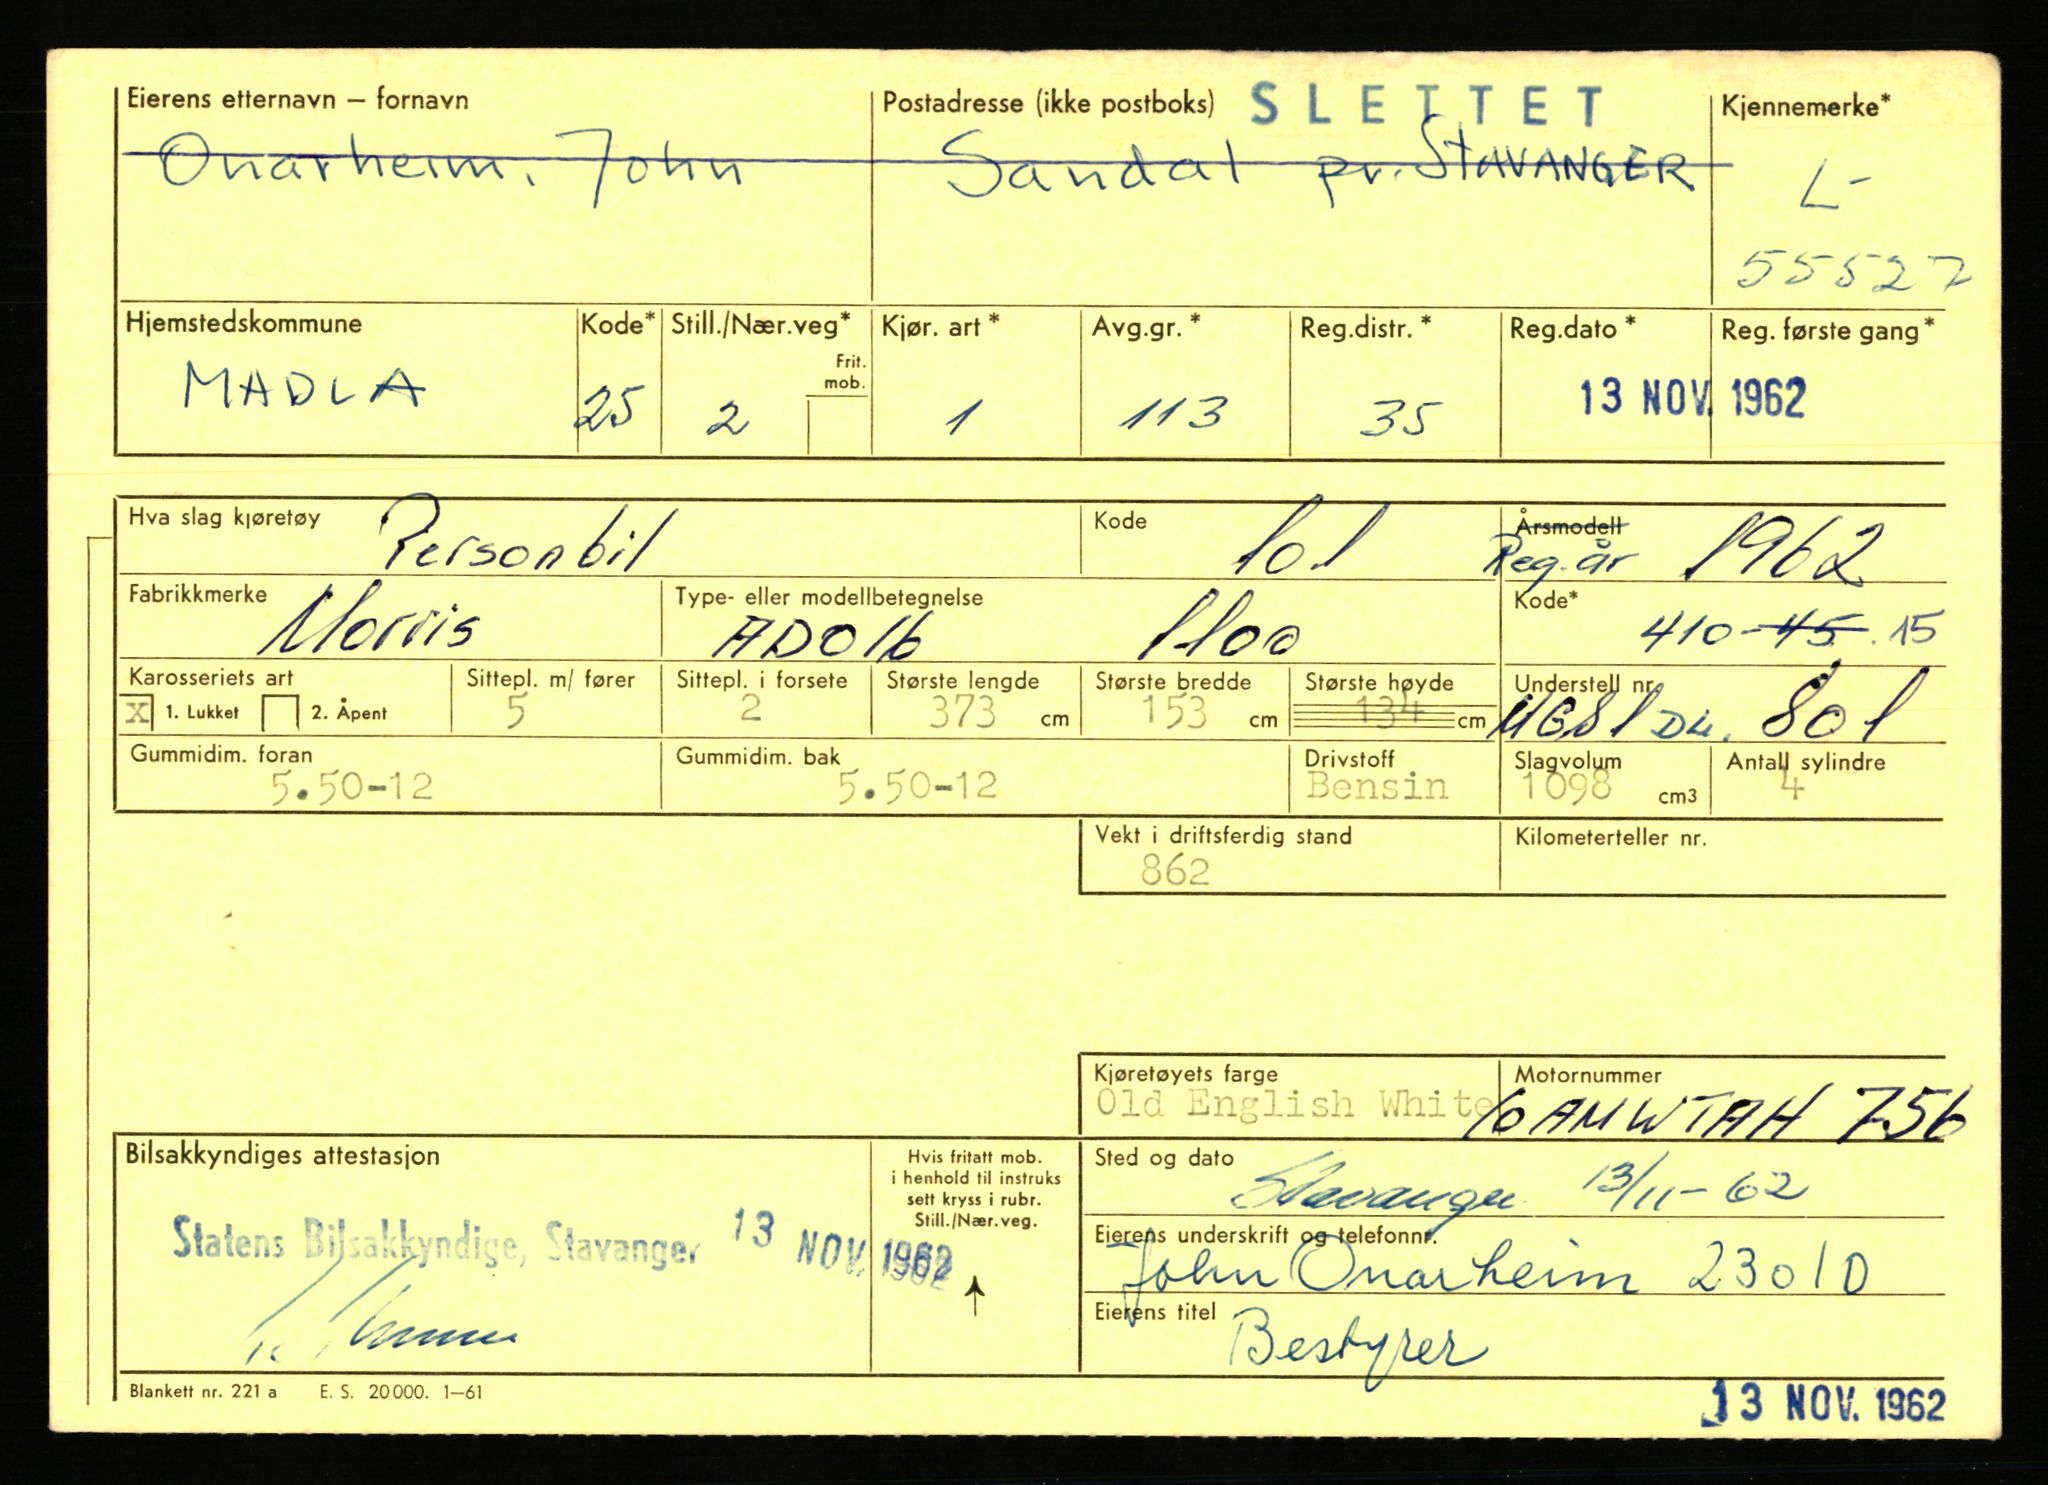 Eierens etternavn – fornavn
Onarheim, John
Postadresse (ikke postboks) SLETTET
Sandal pr. STAVANGER
Kjennemerke*
L-
55527
Hjemstedskommune
MADLA
Kode*
25
Still./Nær.veg*
Frit.
mob.
2
Kjør. art *
1
Avg.gr. *
113
Reg.distr. *
35
Reg.dato * Reg. første gang *
13 NOV. 1962
Hva slag kjøretøy
Personbil
Kode
101
Årsmodell
Reg.år 1962
Fabrikkmerke
Morris
Type- eller modellbetegnelse
ADO16 1100
Kode*
410-45.15
Karosseriets art
X 1. Lukket 2. Åpent
Sittepl. m/ fører
5
Sittepl. i forsete
2
Største lengde
373 cm
Største bredde
153 cm
Største høyde
134 cm
Understell nr.
801
Gummidim. foran
5.50-12
Gummidim. bak
5.50-12
Drivstoff
Bensin
Slagvolum
1098 cm3
Antall sylindre
4
Vekt i driftsferdig stand
862
Kilometerteller nr.
Kjøretøyets farge
Old English White
Motornummer
10AMWTAH 756
Bilsakkyndiges attestasjon
Statens Bilsakkyndige, Stavanger 13 NOV. 1962
Hvis fritatt mob.
i henhold til instruks
sett kryss i rubr.
Still./Nær.veg.
Sted og dato
Stavanger 13/11-62
Eierens underskrift og telefonnr.
John Onarheim 23010
Eierens titel
Bestyrer
Blankett nr. 221 a E. S. 20000. 1–61
13 NOV. 1962